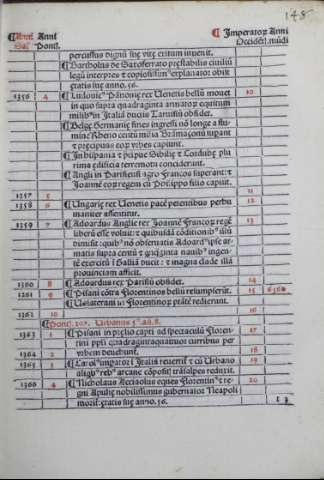 148
¶Anni Anni ¶Imperator̨ Anni
Sal. Pont. Occidēt. mūdi
percussus dignū suę vitę exitum inuenit.
¶Bartholus de Saxoferrato pręstabilis ciuiliū
legū interpres & copiosissim⁹ explanator obit
ętatis suę anno. 56.
1356 4 ¶Ludouic⁹ Panonię rex Venetis bellū mouet 10
in quo supra quadraginta armator̨ equitum
milib⁹ in Italiā ducis Taruisiū obsidet.
¶Belgę Germanię fines ingressi nō longe a flu-
mine Rheno centū milia
t pręcipuas eor̨ vrbes capiunt.
¶In Hispania t pręcipue Sibilię t Cordubę plu
rima ędificia terremotu conciderunt.
¶Angli in Parisiensi agro Francos superant: t
Joannē eor̨ regem cū Philippo filio capiunt.
1357 5 11
1358 6 ¶Ungarię rex Venetis pacē petentibus perhu 12
maniter assentitur.
1359 7 ¶Adoardus Anglię rex Joannē Francor̨ regē 13
liberū esse voluit: t quibusdā cōditionib⁹ illū
dimisit: quib⁹ nō obseruatis Adoard⁹ ipse ar-
matis supra centū t
tē exercitū ī Galliā ducit: t magna clade illā
prouinciam afficit.
1360 8 ¶Adoardus rex Parisiū obsidet. 14
1361 9 ¶Pisani cōtra Florentinos bellū resumpserūt. 15 6560
¶Volaterani vt Florentinor̨ ptātē redierant.
1362 10 16
¶Pont. 207. Urbanus 5⁹ an. 8.
1363 1 ¶Pisani in prelio capti ad spectaculū Floren- 17
tini ppli quadragintaquatuor curribus per
1364 2 vrbem deuehunt. 18
1365 3 ¶Carol⁹ imperator ī Italiā reuertit t cū Urbano 19
aliqb⁹ reb⁹ arcane cōpositis trāsalpes reduxit.
1366 4 ¶Nicholaus Acciaolus eques Florentin⁹ t re- 20
gni Apulię nobilissimus gubernator Neapoli
morit: ętatis suę anno. 56.